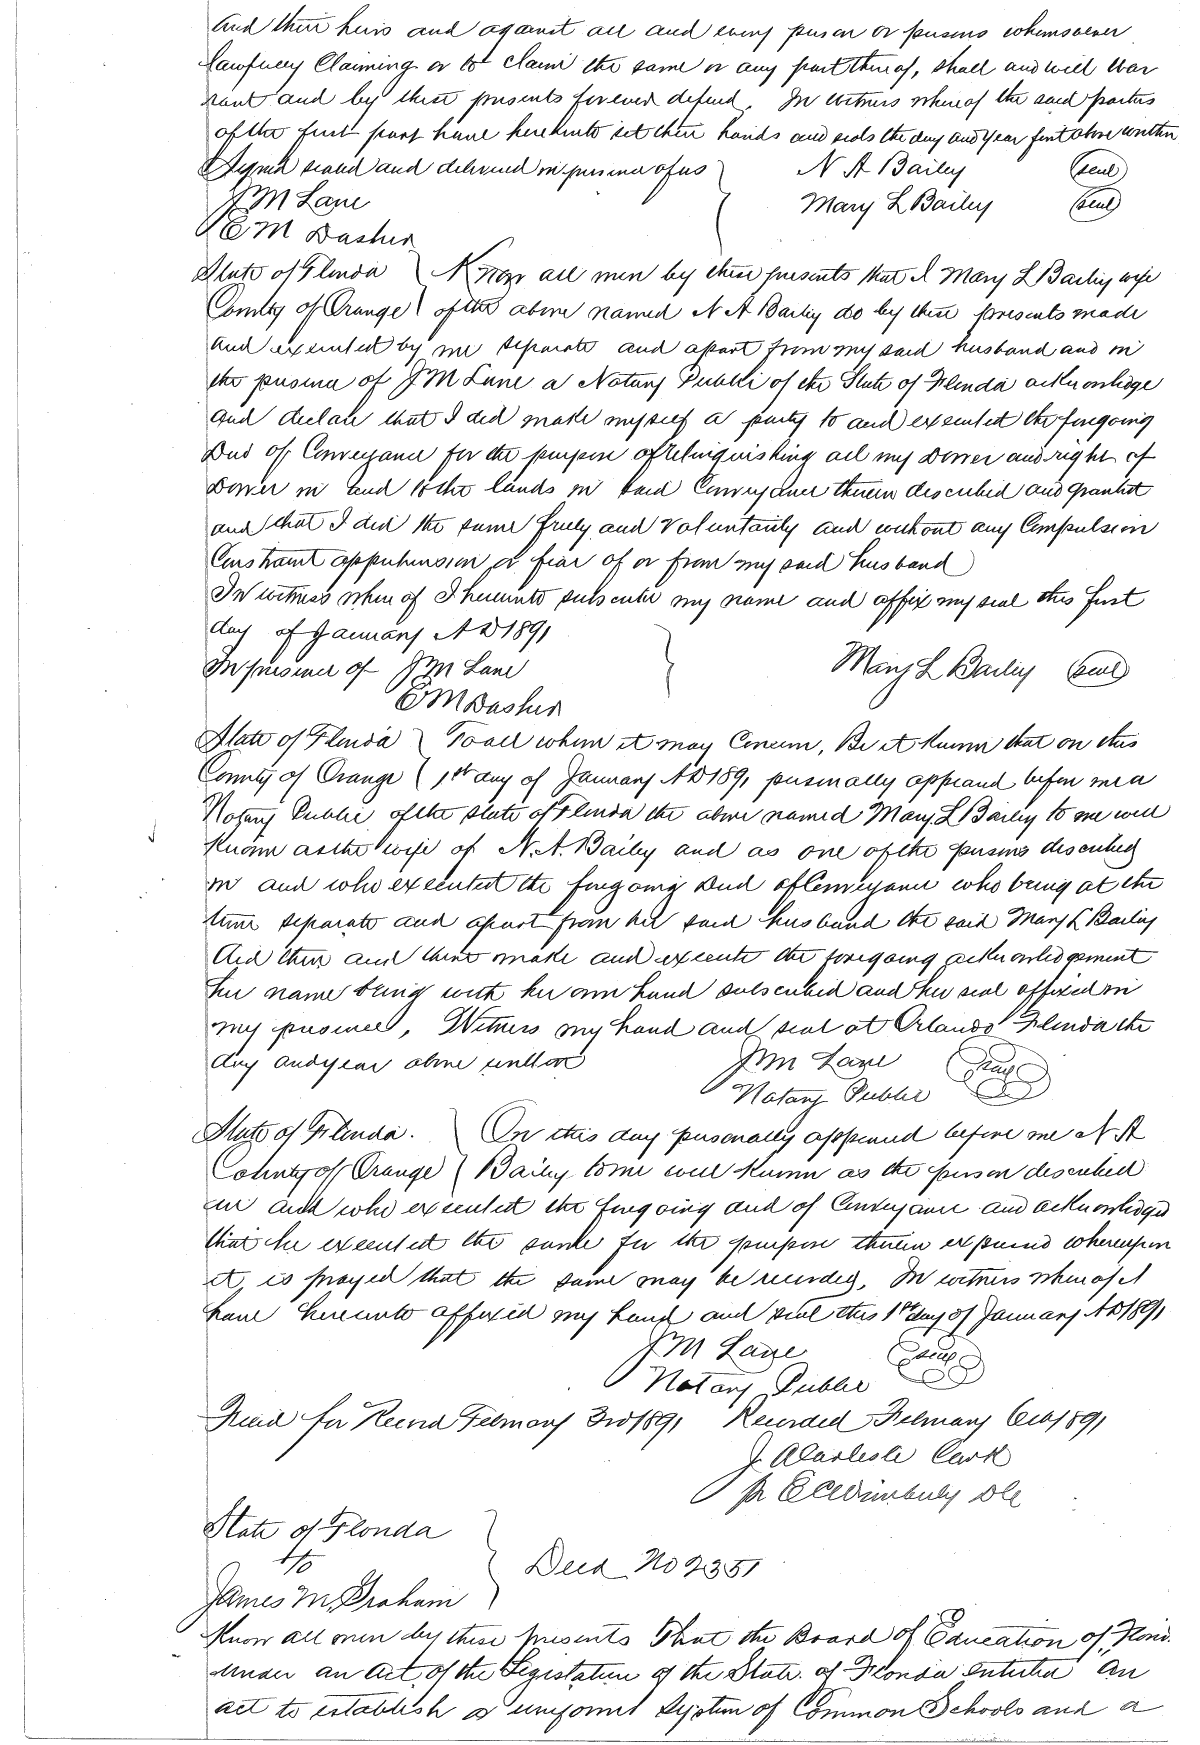 And their heirs and against all and every person or persons whomsoever
lawfully Claiming or to claim the same or any part thereof, shall and will War
rant and by these presents forever defend. In witness whereof the said parties
of the first part have hereunto set their hands and seals the day and year first above written
Signed sealed and delivered in presence of us N A Bailey (seal)
J M Lane Mary L Bailey (seal)
E M Dasher
State of Florida Know all men by these presents that I Mary L Bailey wife
County of Orange of the above named N A Bailey do by these presents made
and executed by me separate and apart from my said husband and in
the presence of J M Lane a Notary Public of the State of Florida acknowledge
and declare that I did make myself a party to and executed the foregoing
Deed of Conveyance for the purpose of relinquishing all my Dower and right of
Dower in and to the lands in said Conveyance therein described and granted
and that I did the same freely and Voluntarily and without any Compulsion
Constraint apprehension or fear of or from my said husband
In witness where of I hereunto subscribe my name and affix my seal this first
day of January A D 1891
In presence of J M Lane Mary L Bailey (seal)
E M Dasher
State of Florida To all whom it may Concern, Be it Known that on this
County of Orange 1st day of January A D 1891 personally appeared before me a
Notary Public of the State of Florida the above named Mary L Bailey to me well
Known as the wife of N. A. Bailey and as one of the persons described
in and who executed the foregoing Deed of Conveyance who being at the
time separate and apart from her said husband the said Mary L Bailey
did then and there make and execute the foregoing acknowledgement
her name being with her own hand subscribed and her seal affixed in
my presence, Witness my hand and seal at Orlando Florida the
day and year above written J M Lane (seal)
Notary Public
State of Florida. On this day personally appeared before me N A
County of Orange Bailey to me well Known as the person described
in and who executed the foregoing deed of Conveyance and acknowledged
that he executed the same for the purpose therein expressed whereupon
it is prayed that the same may be recorded. In witness whereof I
have hereunto affixed my hand and seal this 1st day of January A D 1891
J M Lane (seal)
Notary Public
Filed for Record February 3rd 1891 Recorded February 6th 1891
J. A Carlisle Clerk
pr
State of Florida
to Deed No 2351
James M. Graham
Know all men by these presents That the Board of Education of Flori.
under an act, of the Legislature of the State of Florida entitled An
act to establish a uniform System of Common Schools and a